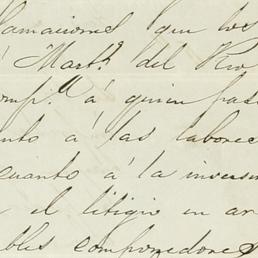 lamaciones que los
á Marth. del Rio
comp.ª á quien pase
nto á las labores
cuanto á la invers
el litigio en ar
bles componedores